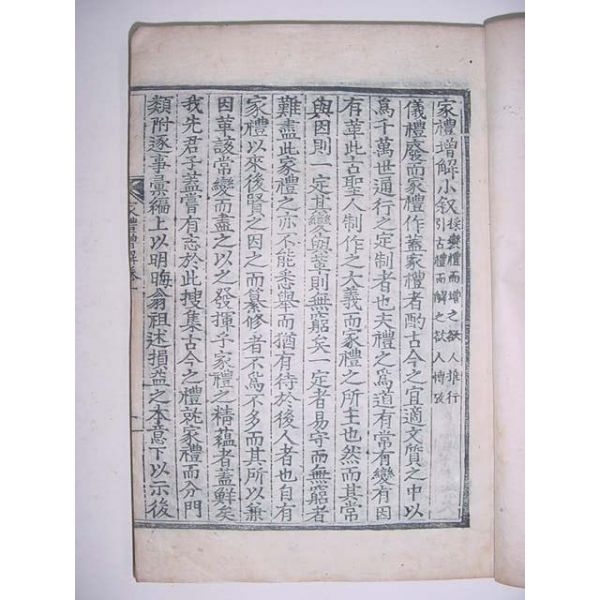 家禮增解小叙
採變禮而增之欲人推行
引古禮而解之欲人博攷
儀禮廢而家禮作蓋家禮者酌古今之宜適文質之中以
爲千萬世通行之定制者也夫禮之爲道有常有變有因
有革此古聖人制作之大義而家禮之所主也然而其常
與因則一定其變與革則無窮矣一定者易守而無窮者
難盡此家禮之亦不能悉擧而猶有待於後人者也自有
家禮以來後賢之因之而纂修者不爲不多而其所以兼
因革該常變而盡之以之發揮乎家禮之精蘊者蓋鮮矣
我先君子蓋嘗有志於此搜集古今之禮就家禮而分門
類附逐事彙編上以明晦翁祖述損益之本意下以示後
家禮增解卷一